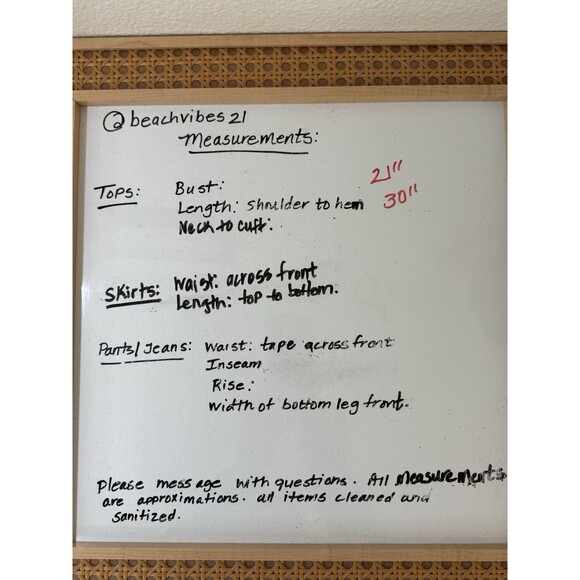 @ beachvibes 21
Measurements:
Tops: Bust: 21"
Length: Shoulder to hem 30"
Neck to cuff:
Skirts: Waist: across front
Length: top to bottom.
Pants/Jeans: Waist: tape across front
Inseam
Rise:
Width of bottom leg front.
Please message with questions. All measurements
are approximations. all items cleaned and
sanitized.